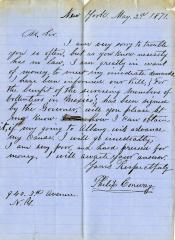 New York May 2nd 1871.
Mr. Sir
I am very sorry to trouble
you so often, but as you know necessity
has no law, I am greatly in want
of money, to meet my immediate demands,
I have been informed our bill, for
the benefit of the surviving members of
Volunteers in Mexico, has been signed
by the Governor, will you please let
me know how I can obtain
if my going to Albany will advance
my cause, I will go immediately,
I am very poor and have pressed for
money, I will await your answer.
Yours Respectfully
Philip Conway
940. 2nd Avenue.
N.Y.